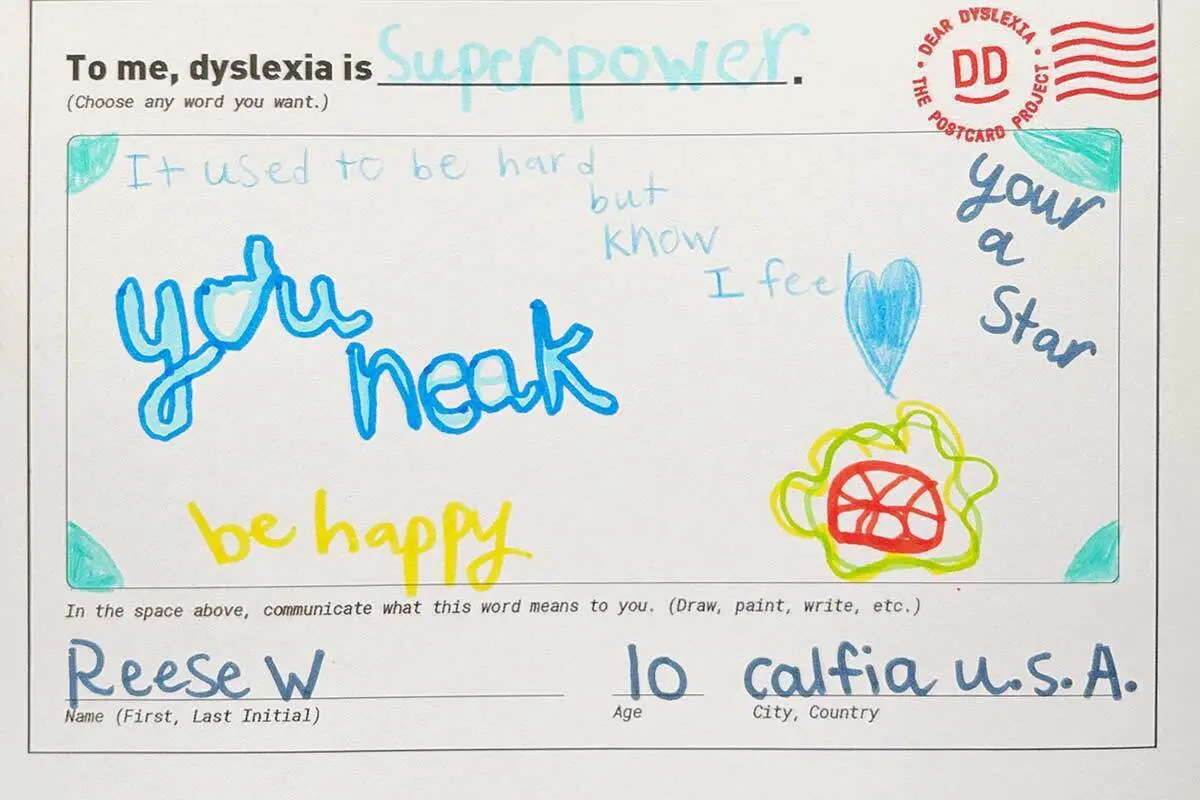 To me, dyslexia is Superpower.
(Choose any word you want.)
DEAR DYSLEXIA
DD
THE POSTCARD PROJECT
It used to be hard
but
know
I feel
your
a
Star
you
neak
be happy
In the space above, communicate what this word means to you. (Draw, paint, write, etc.)
Reese W
Name (First, Last Initial)
10
Age
calfia u.s.A.
City, Country